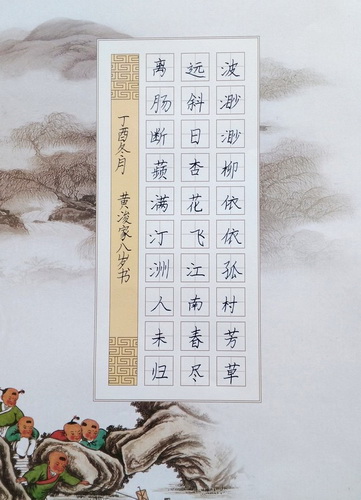 波渺渺柳依依孤村芳草
远斜日杏花飞江南春尽
离肠断蘋满汀洲人未归
丁酉冬月 黄浚家八岁书